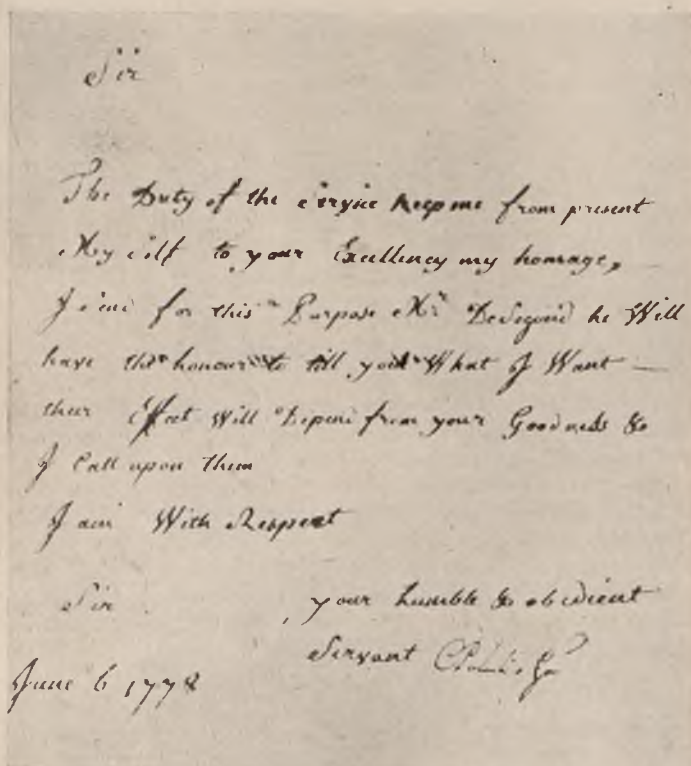 Sir
The Duty of the Service Keep me from present
My self to your Excellency my homage,
I send for this Purpose Mr DeSegond he Will
have the honour to till you What I Want —
their Effect Will Depend from your Goodness &
I Call upon them
I am With Respect
Sir your humble & obedient
Servant
June 6 1778